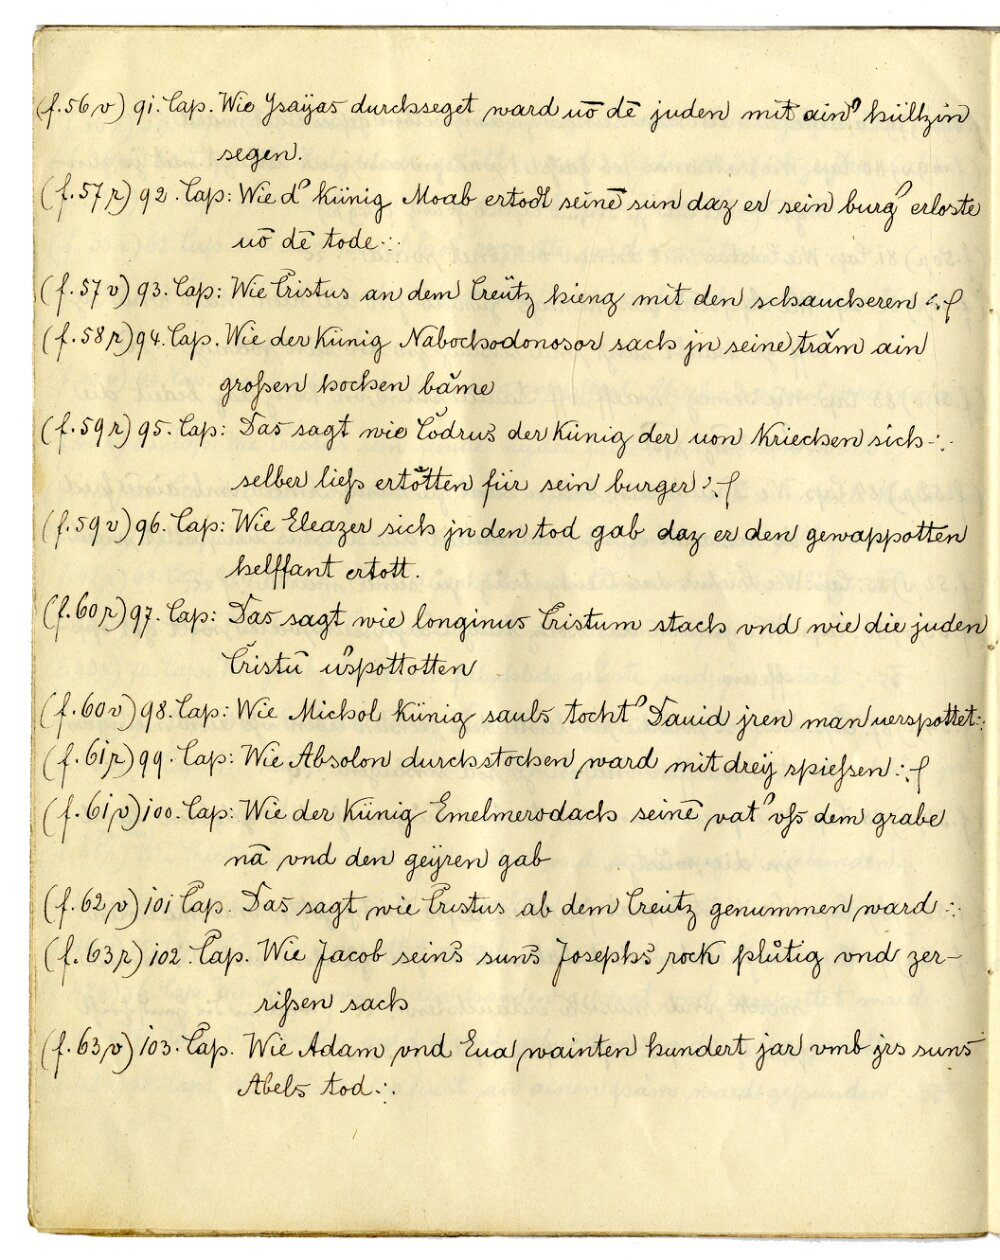 (f. 56 v) 91. Cap. Wie Ysaÿas durchseget ward uō dē juden mit ain᾽ hültzin
segen.
(f. 57 r) 92. Cap: Wie d᾽ künig Moab ertodt seinē sun daz er sein burg᾽ erloste
uō dē tode :·
(f. 57 v) 93. Cap: Wie Cristus an dem Creütz hieng mit den schaucheren
(f. 58 r) 94. Cap. Wie der künig Nabochodonosor sach jn seine trăm ain
großen hochen băme
(f. 59 r) 95. Cap: Das sagt wie Cŏdrus der künig der uon Kriechen sich :·
selber ließ ertŏtten für sein burger
(f. 59 v) 96. Cap: Wie Eleazer sich jn den tod gab daz er den gewappotten
helffant ertott.
(f. 60 r) 97. Cap: Das sagt wie longinus Cristum stach vnd wie die juden
Cristū u᾽spottotten
(f. 60 v) 98. Cap: Wie Michol künig sauls tocht᾽ Dauid jren man uerspottet :·
(f. 61 r) 99. Cap: Wie Absolon durchstochen ward mit dreÿ spießen :·
(f. 61 v) 100. Cap: Wie der künig Emelmerodach seinē vat᾽ vß dem grabe
nā vnd den geÿren gab
(f. 62 v) 101 Cap. Das sagt wie Cristus ab dem Creütz genummen ward :·
(f. 63 r) 102. Cap. Wie Jacob seins suns Josephs rock plůtig vnd zer-
rißen sach
(f. 63 v) 103. Cap. Wie Adam vnd Eua wainten hundert jar vmb jrs suns
Abels tod :·